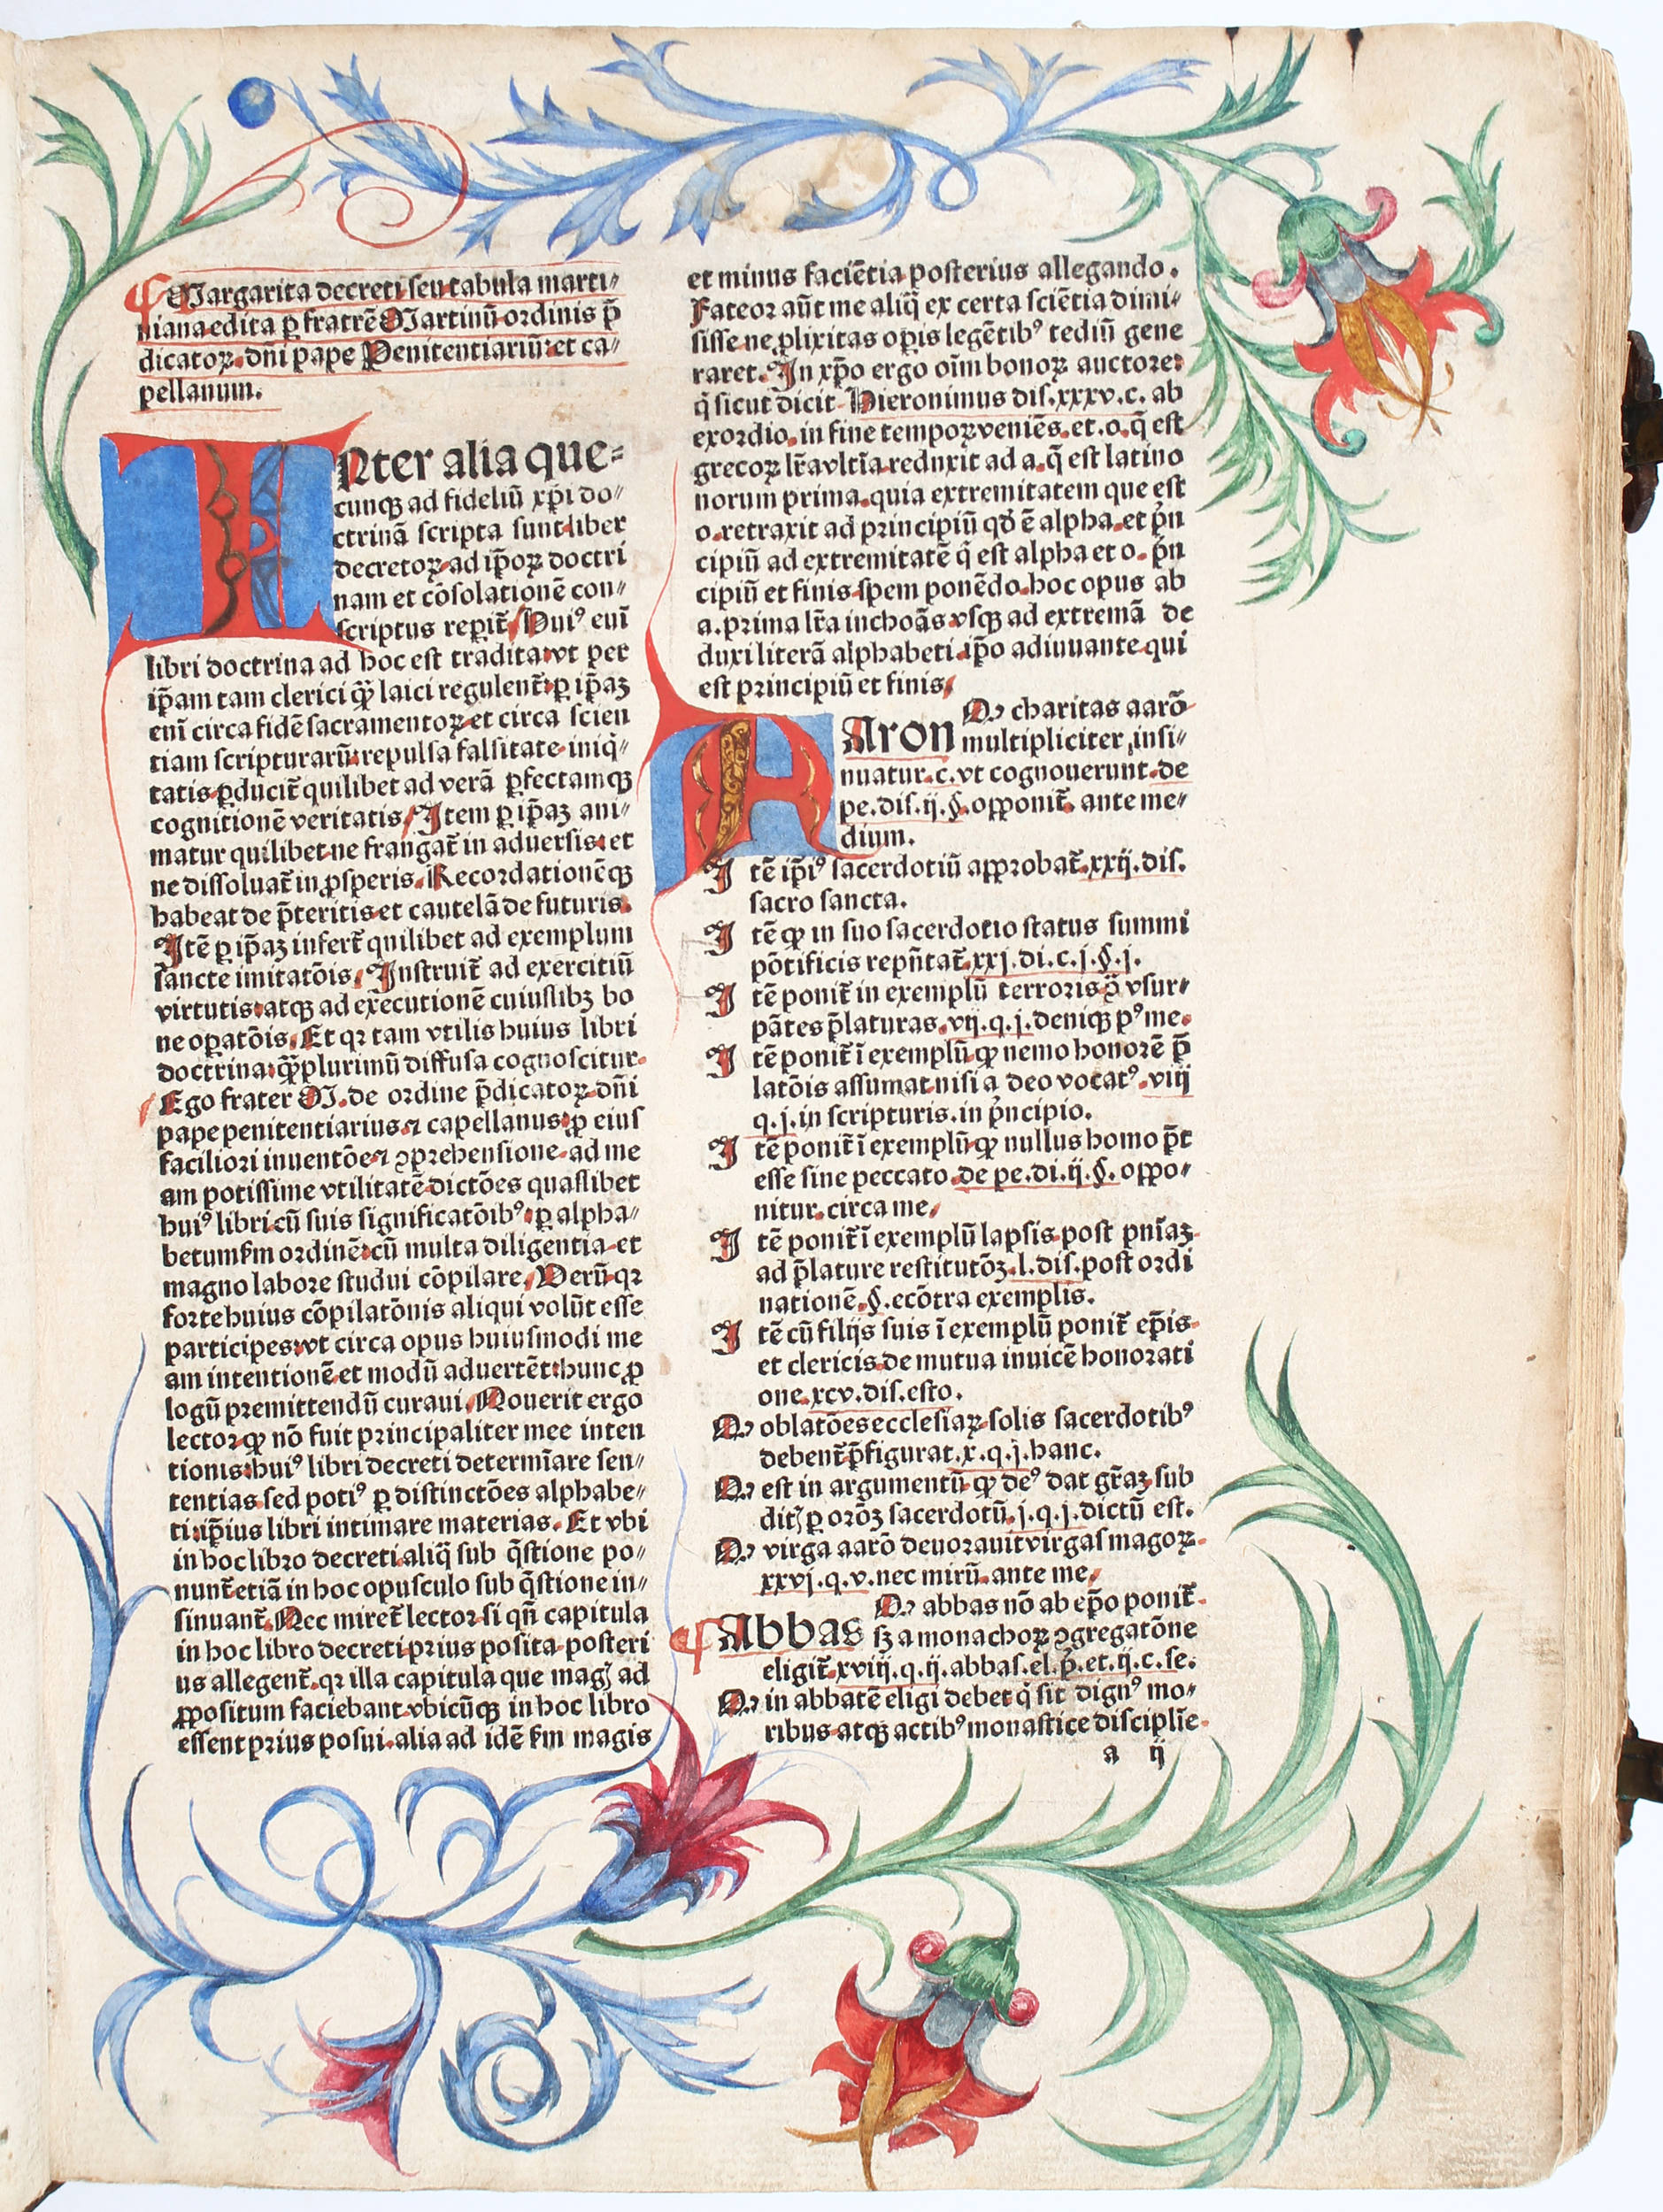 Margarita decreti seu tabula marti⸗
niana edita ꝑ fratrē Martinū ordinis p̄
dicatoꝝ. dn̄i pape Penitentiariū: et ca⸗
pellanum.
INter alia que⸗
cunqꝫ ad fideliū xp̄i do⸗
ctrinā scripta sunt: liber
decretoꝝ. ad ip̄oꝝ doctri
nam et cōsolationē con⸗
scriptus reperit̄. Huiꝰ enī
libri doctrina ad hoc est tradita: vt per
ip̄am tam clerici ꝙ̄ laici regulent̄: ꝑ ip̄aꝫ
enī circa fidē sacramentoꝝ. et circa scien
tiam scripturarū: repulsa falsitate iniq̄⸗
tatis. ꝑducit̄ quilibet ad verā ꝑfectamqꝫ
cognitionē veritatis. Item ꝑ ip̄aꝫ ani⸗
matur quilibet. ne frangat̄ in aduersis: et
ne dissoluat̄ in ꝓsperis. Recordationēqꝫ
habeat de p̄teritis. et cautelā de futuris.
Itē ꝑ ip̄aꝫ infert̄ quilibet ad exemplum
sancte imitatōis. Instruit̄ ad exercitiū
virtutis: atqꝫ ad executionē cuiuslibꝫ bo
ne oꝑatōis. Et qꝛ tam vtilis huius libri
doctrina: ꝙ̄plurimū diffusa cognoscitur.
Ego frater M. de ordine p̄dicatoꝝ. dn̄i
pape penitentiarius. ⁊ capellanus: ꝓ eius
faciliori inuentōe. ⁊ ꝯprehensione. ad me
am potissime vtilitatē. dictōes quaslibet
huiꝰ libri. cū suis significatōibꝰ: ꝑ alpha⸗
betum sm̄ ordinē: cū multa diligentia. et
magno labore studui cōpilare. Verū. qꝛ
forte huius cōpilatōnis aliqui volūt esse
participes: vt circa opus huiusmodi me
am intentionē. et modū aduertēt: hunc ꝓ
logū premittendū curaui. Nouerit ergo
lector. ꝙ nō fuit principaliter mee inten
tionis: huiꝰ libri decreti determīare sen⸗
tentias. sed potiꝰ ꝑ distinctōes alphabe⸗
ti: ip̄ius libri intimare materias. Et vbi
in hoc libro decreti. aliq̄ sub q̄stione po⸗
nunt̄. etiā in hoc opusculo sub q̄stione in⸗
sinuant̄. Nec miret̄ lector. si qn̄ capitula
in hoc libro decreti. prius posita. posteri
us allegent̄. qꝛ illa capitula que magꝭ ad
ꝓpositum faciebant. vbicūqꝫ in hoc libro
essent prius posui. alia ad idē sm̄ magis
et minus faciētia posterius allegando.
Fateor aūt me aliq̄ ex certa sciētia dimi⸗
sisse. ne ꝓlixitas oꝑis legētibꝰ tediū gene
raret. In xp̄o ergo oīm bonoꝝ auctore:
q̄ sicut dicit Hieronimus dis. xxxv. c. ab
exordio. in fine tempoꝝ veniēs. et. o. q̄ est
grecoꝝ lr̄a vltīa reduxit ad a. q̄ est latino
norum prima. quia extremitatem que est
o. retraxit ad principiū qd̓ ē alpha. et pn̓
cipiū ad extremitatē q̄ est alpha et o. pn̓
cipiū et finis. spem ponēdo. hoc opus ab
a. prima lr̄a inchoās. vsqꝫ ad extremā de
duxi literā alphabeti. ip̄o adiuuante qui
est principiū et finis.
Qꝛ charitas aarō
AAron multipliciter insi⸗
nuatur. c. vt cognouerunt. de
pe. dis. ij. §. opponit̄. ante me⸗
dium.
Itē ip̄iꝰ sacerdotiū approbat̄. xxij. dis.
sacro sancta.
Itē ꝙ in suo sacerdotio status summi
pōtificis repn̄tat̄. xxj. di. c. j. §. j.
Itē ponit̄ in exemplū terroris ꝯ̄ vsur⸗
pātes p̄laturas. vij. q. j. deniqꝫ pꝰ me.
Itē ponit̄ ī exemplū. ꝙ nemo honorē p̄
latōis assumat. nisi a deo vocatꝰ. viij
q. j. in scripturis. in pn̓cipio.
Itē ponit̄ ī exemplū. ꝙ nullus homo p̄t
esse sine peccato. de pe. di. ij. §. oppo⸗
nitur. circa me.
Itē ponit̄ ī exemplū lapsis. post pnīaꝫ.
ad p̄lature restitutōꝫ. l. dis. post ordi
nationē. §. ecōtra exemplis.
Itē cū filijs suis ī exemplū ponit̄ ep̄is.
et clericis. de mutua inuicē honorati
one. xcv. dis. esto.
Qꝛ oblatōes ecclesiaꝝ. solis sacerdotibꝰ
debent̄ p̄figurat. x. q. j. hanc.
Qꝛ est in argumentū. ꝙ deꝰ dat gr̄aꝫ sub
ditꝭ ꝑ orōꝫ sacerdotū. j. q. j. dictū est.
Qꝛ virga aarō deuorauit virgas magoꝝ.
xxvj. q. v. nec mirū. ante me.
Qꝛ abbas nō ab ep̄o ponit̄.
Abbas sꝫ a monachoꝝ ꝯgregatōne
eligit̄. xviij. q. ij. abbas. el. p̄. et. ij. c. se.
Qꝛ in abbatē eligi debet q̓ sit dignꝰ mo⸗
ribus atqꝫ actibꝰ monastice disciplīe.
a ij